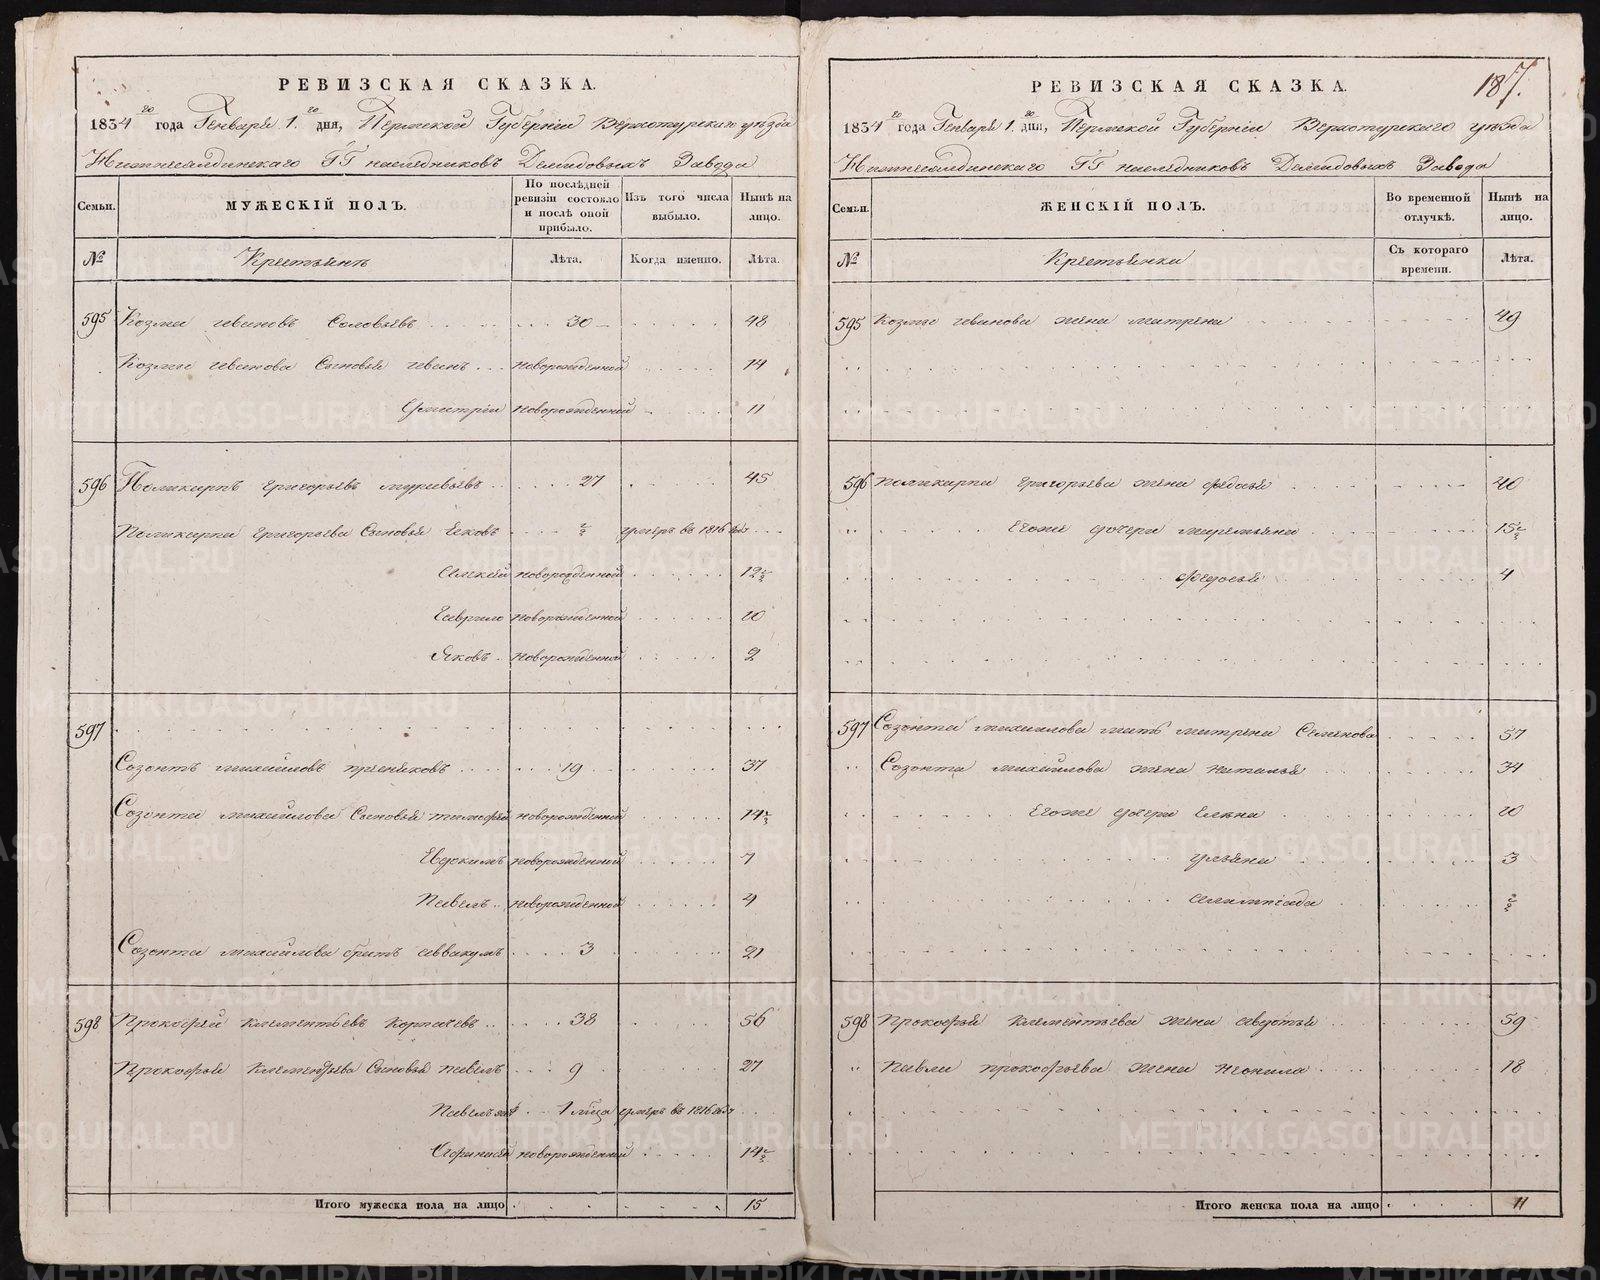 РЕВИЗСКАЯ СКАЗКА.
1834 го года Генваря 1. го дня, Пермской Губернии Верхотурскаго уезда
Нижнесалдинскаго ГГ наследниковъ Демидовыхъ Завода
Семьи.
МУЖЕСКІЙ ПОЛЪ.
По послѣдней ревизіи состояло и послѣ оной прибыло.
Изъ того числа выбыло.
Нынѣ на лицо.
№
Крестьянъ
Лѣта.
Когда именно.
Лѣта.
595 Козма Ивановъ Соловьевъ 30 48
Козмы Иванова Сыновья Иванъ новорожденной 14
Дмитрій новорожденной 11
596 Поликарпъ Григорьевъ Муревьевъ 27 45
Поликарпа Григорьева Сыновья Яковъ ½ умеръ въ 1816 году
Алексей новорожденной 12½
Гаврило новорожденной 10
Яковъ новорожденной 2
597
Созонтъ Михайловъ Пряниковъ 19 37
Созонта Михайлова Сыновья Тимофей новорожденной 14½
Евдокимъ новорожденной 7
Павелъ новорожденной 4
Созонта Михайлова братъ Аввакумъ 3 21
598 Прокофей Клементьевъ Корпачевъ 38 56
Прокофья Клементьева Сыновья Павелъ 9 27
Павелъ же 1 мѣсяца умеръ въ 1816 году
Офонасей новорожденной 14½
Итого мужеска пола на лицо 15
187.
РЕВИЗСКАЯ СКАЗКА.
1834 го года Генваря 1. го дня, Пермской Губернии Верхотурскаго уезда
Нижнесалдинскаго ГГ наследниковъ Демидовыхъ Завода
Семьи.
ЖЕНСКІЙ ПОЛЪ.
Во временной отлучкѣ.
Нынѣ на лицо.
№
Крестьянки
Съ котораго времени.
Лѣта.
595 Козмы Иванова жена Матрена 49
596 Поликарпа Григорьева жена Федосья 40
Егоже дочери Маремьяна 15½
Федосья 4
597 Созонта Михайлова мать Матрена Семенова 57
Созонта Михайлова жена Наталья 34
Егоже дочери Елена 10
Ульяна 3
Алимпіада ½
598 Прокофья Клементьева жена Авдотья 59
Павла Прокофьева жена Неонила 18
Итого женска пола на лицо 11
METRIKI.GASO-URAL.RU